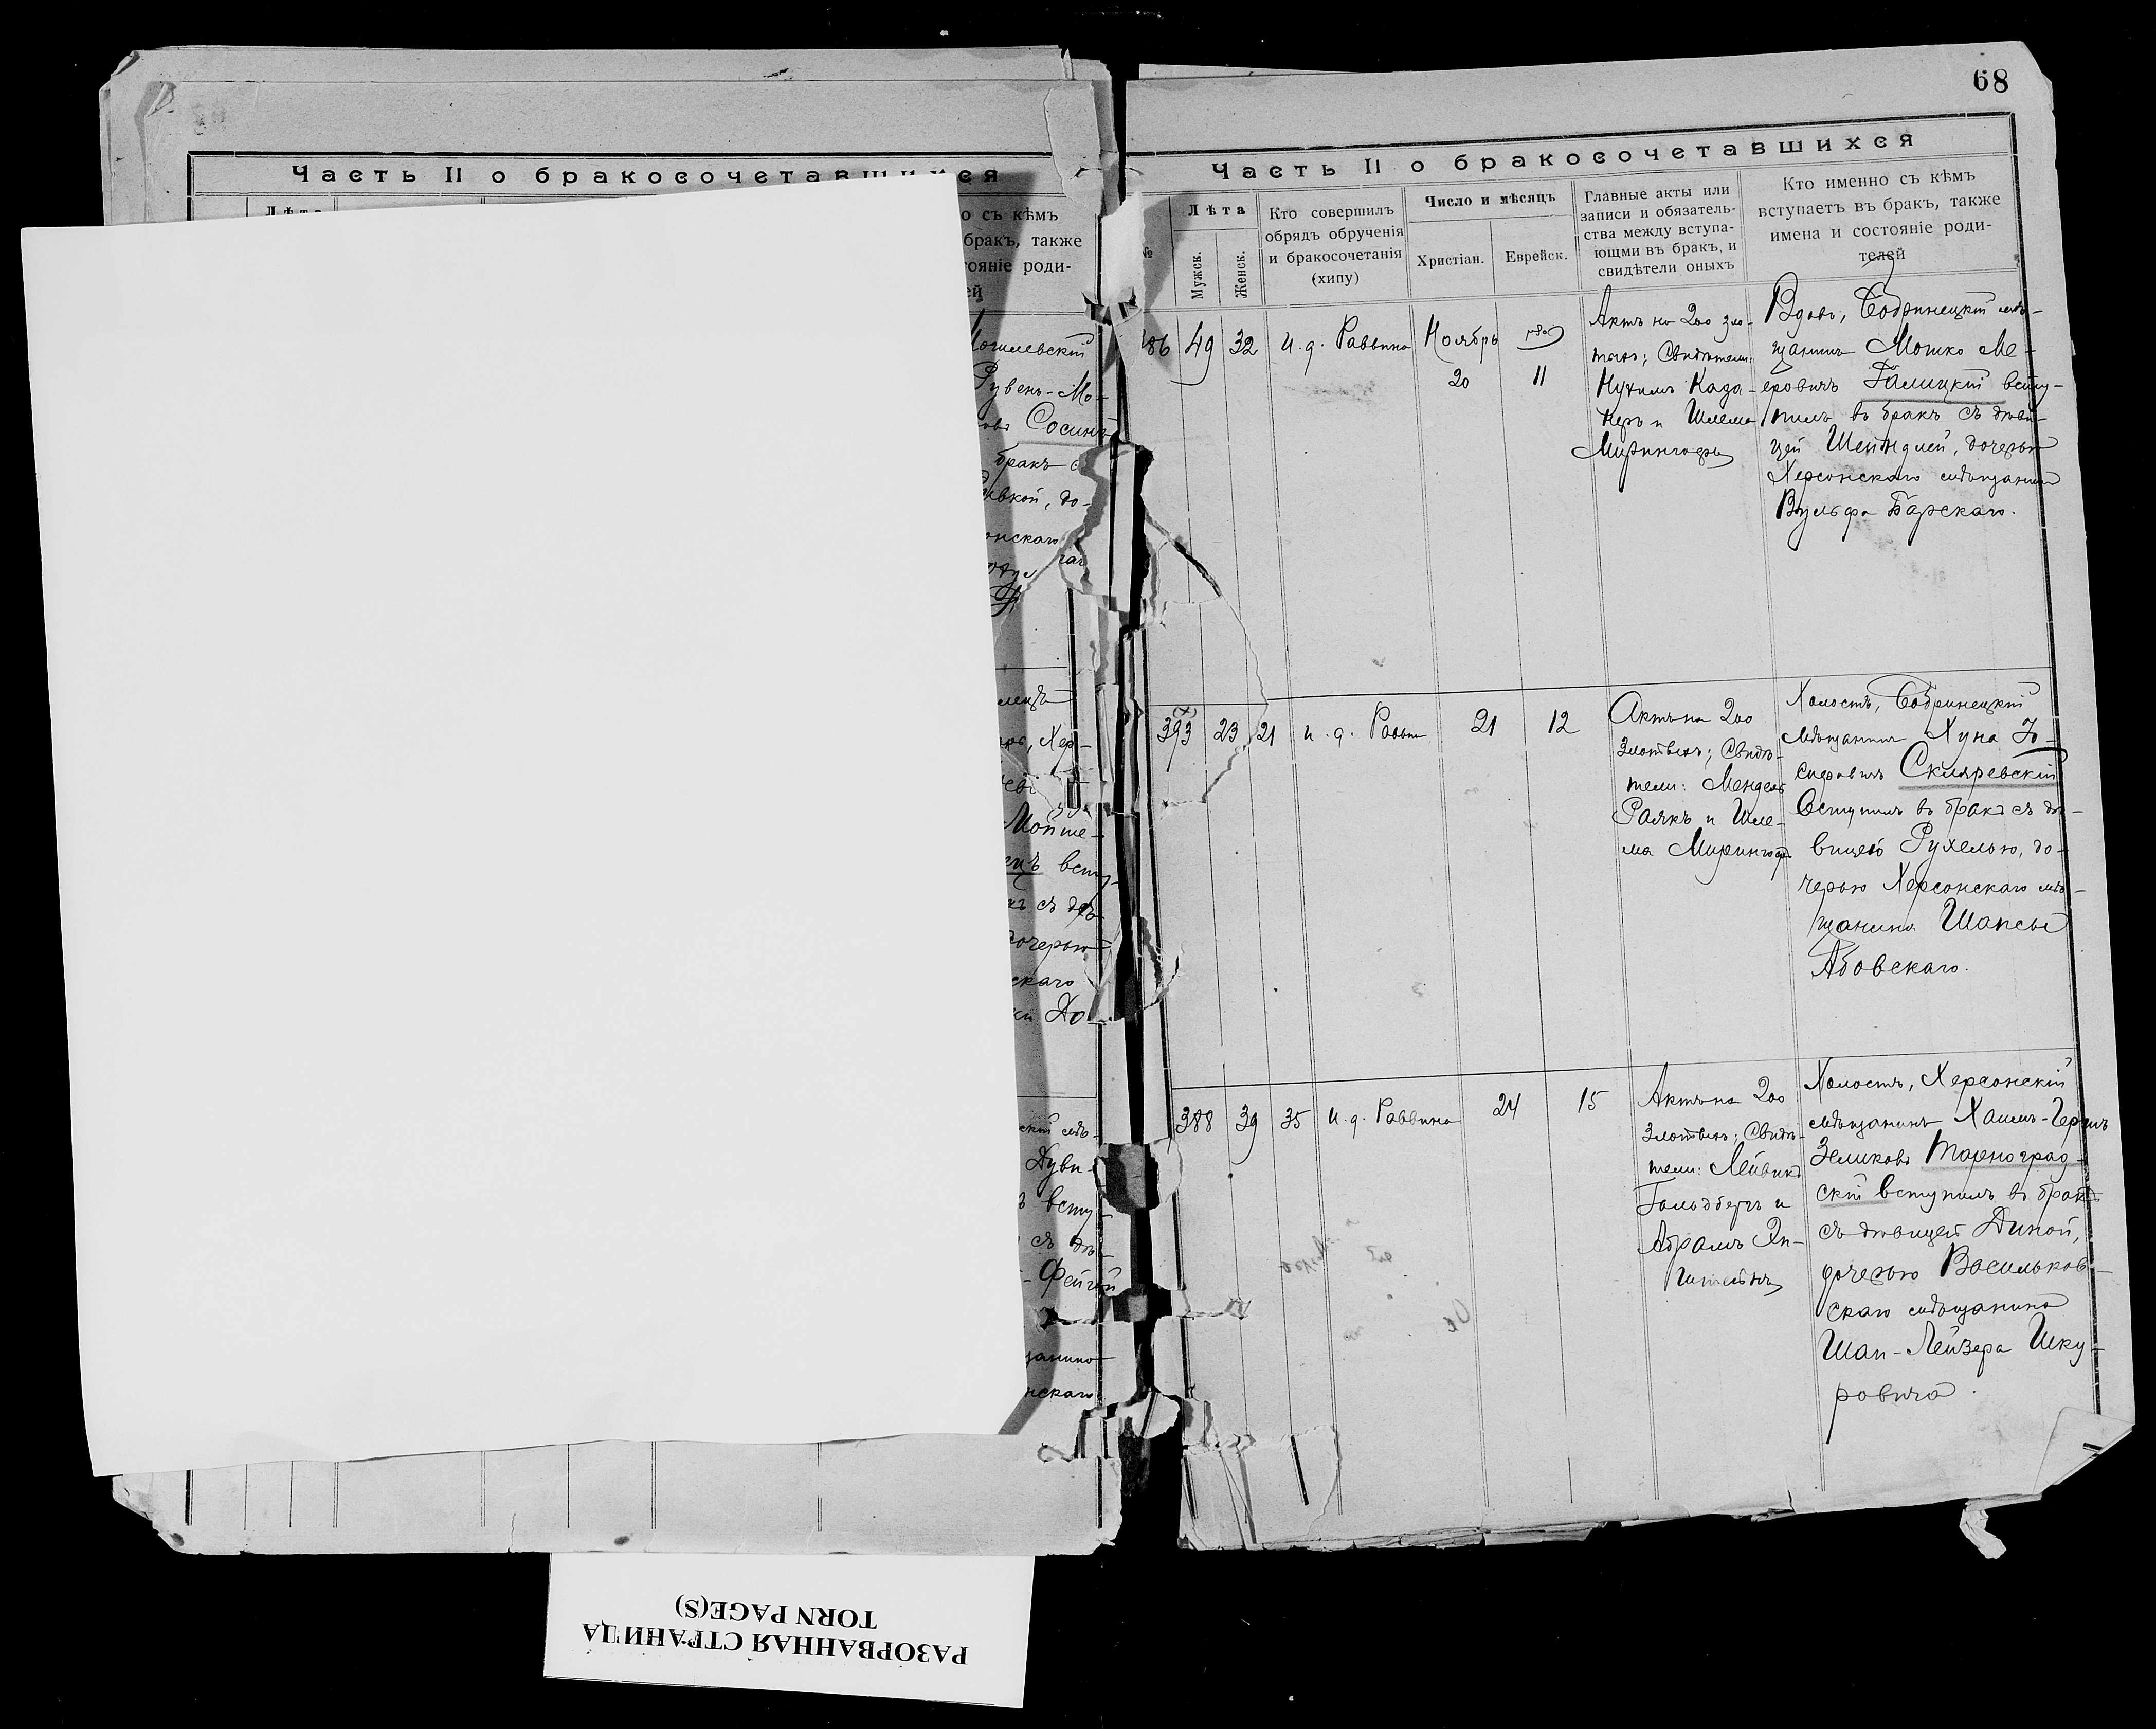 68
Часть II о бракосочетавшихся
о съ кѣмъ
бракъ, также
тояніе роди-
ей
Могилевскій
Рувенъ-Мо-
Сосинъ
бракъ с
до-
онскаго
Хер-
Мойше-
всту-
съ дѣ-
дочерью
скаго
Дуви-
всту-
съ дѣ-
Фейгой
щанина
нскаго
Часть II о бракосочетавшихся
№
Лѣта
Мужск.
Женск.
Кто совершилъ
обрядъ обрученія
и бракосочетанія
(хипу)
Число и мѣсяцъ
Христіан.
Еврейск.
Главные акты или
записи и обязатель-
ства между вступа-
ющми въ бракъ, и
свидѣтели оныхъ
Кто именно съ кѣмъ
вступаетъ въ бракъ, также
имена и состояніе роди-
телей
386 49 32 И. д. Раввина Ноябрь
20 11
Актъ на 200 зло-
тыхъ; Свидѣтели:
Нухимъ
и Шлема
Мирингофъ
Вдовъ, Бобринецкій мѣ-
щанинъ Мошко Ме-
еровичъ Галицкій всту-
пилъ въ бракъ съ дѣви-
цей Шейндлей, дочерью
Херсонскаго мѣщанина
Вульфа Барскаго.
393 23 21 и. д. Раввина 21 12
Актъ на 200
злотыхъ; Свидѣ-
тели: Мендель
Раякъ и Шле-
ма Мирингофъ
Холостъ, Бобринецкій
мѣщанинъ Хуна Іо-
сифовичъ Скляревскій
Вступилъ въ бракъ съ дѣ-
вицею Рухелью, до-
черью Херсонскаго мѣ-
щанина Шапсы
Абовскаго.
388 39 35 И. д. Раввина 24 15
Актъ на 200
злотыхъ; Свидѣ-
тели: Лейвикъ
Гольдбергъ и
Абрамъ Эп-
штейнъ
Холостъ, Херсонскій
мѣщанинъ Хаимъ-Гершъ
Зеликовъ Тарноград-
скій вступилъ въ бракъ
съ дѣвицей Диной,
дочерью Васильков-
скаго мѣщанина
Шап-Лейзера Шку-
ровича.
РАЗОРВАННАЯ СТРАНИЦА
TORN PAGE(S)